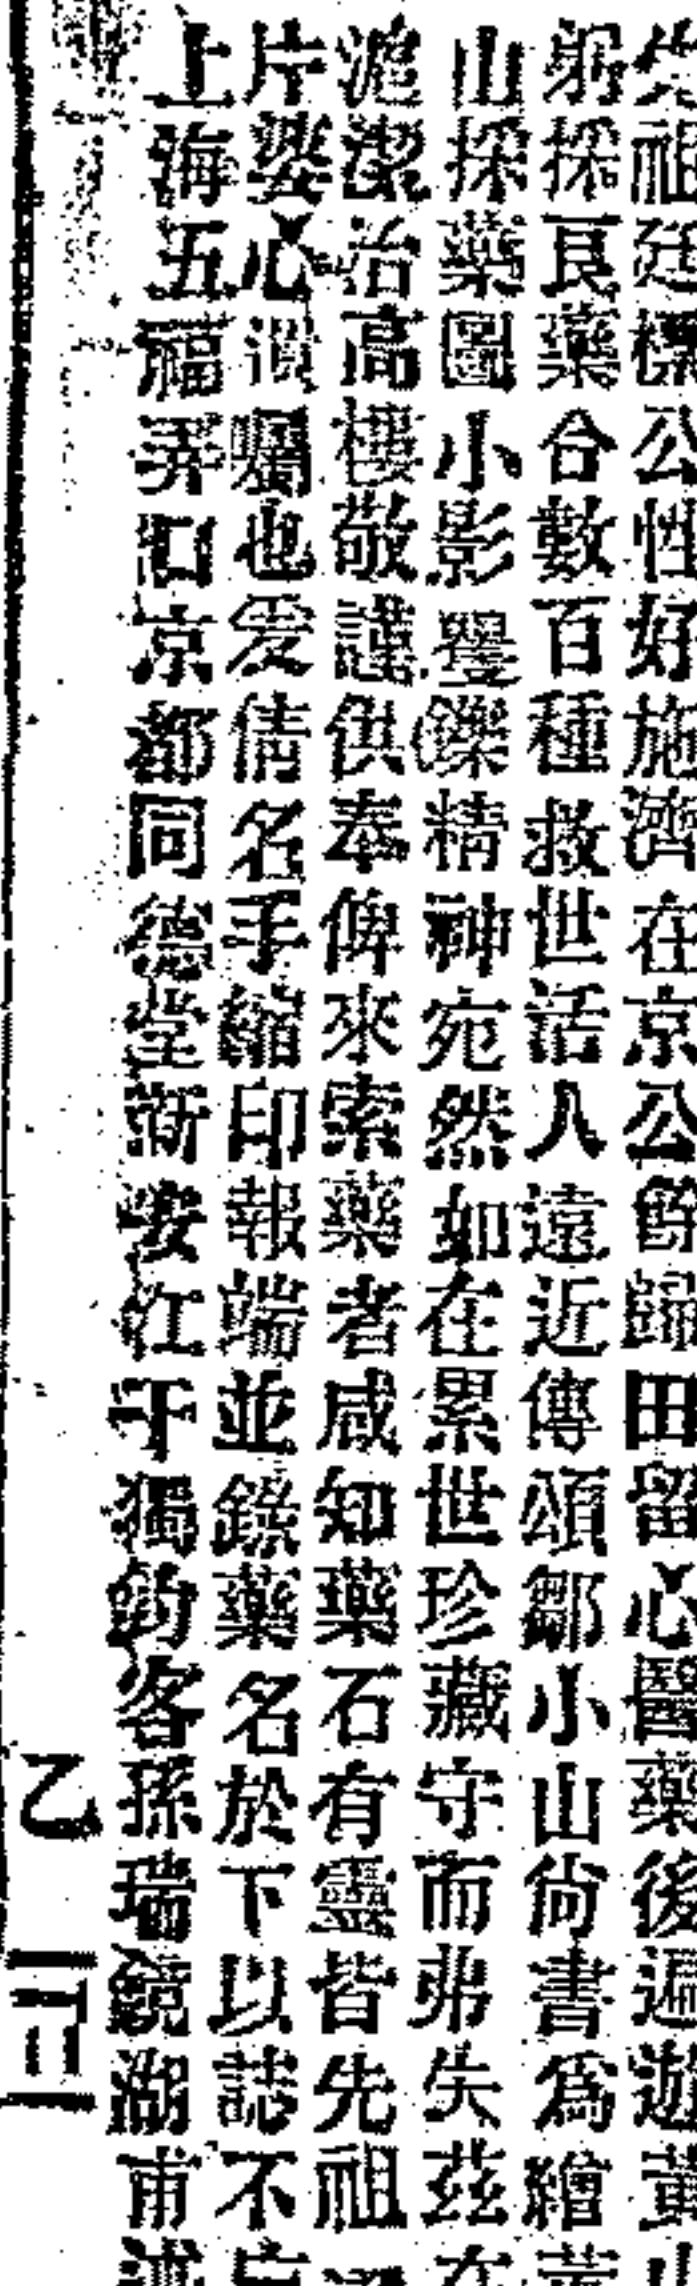 先祖廷標公性好施濟在京公餘歸田留心醫藥後遍遊黃山
躬採良藥合數百種救世活人遠近傳頌鄒小山尙書爲繪黃
山採藥圖小影矍鑠精神宛然如在累世珍藏守而弗失茲在
滬潔治高樓敬謹供奉俾來索藥者咸知藥石有靈皆先祖
片婆心所囑也爰倩名手縮印報端並錄藥名於下以誌不忘
上海五福弄口京都同德堂新安江干獨釣客孫瑞鏡湖甫謹
乙